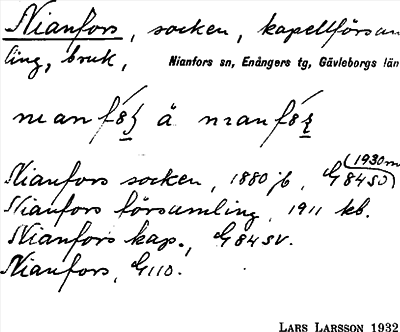 Nianfors, socken, kapellförsam
ling, bruk, Nianfors sn, Enångers tg, Gävleborgs län
å
(1930 m
Nianfors socken, 1880 jb, G84SV)
Nianfors församling, 1911 kb.
Nianfors kap., G84SV.
Nianfors, G110.
LARS LARSSON 1932